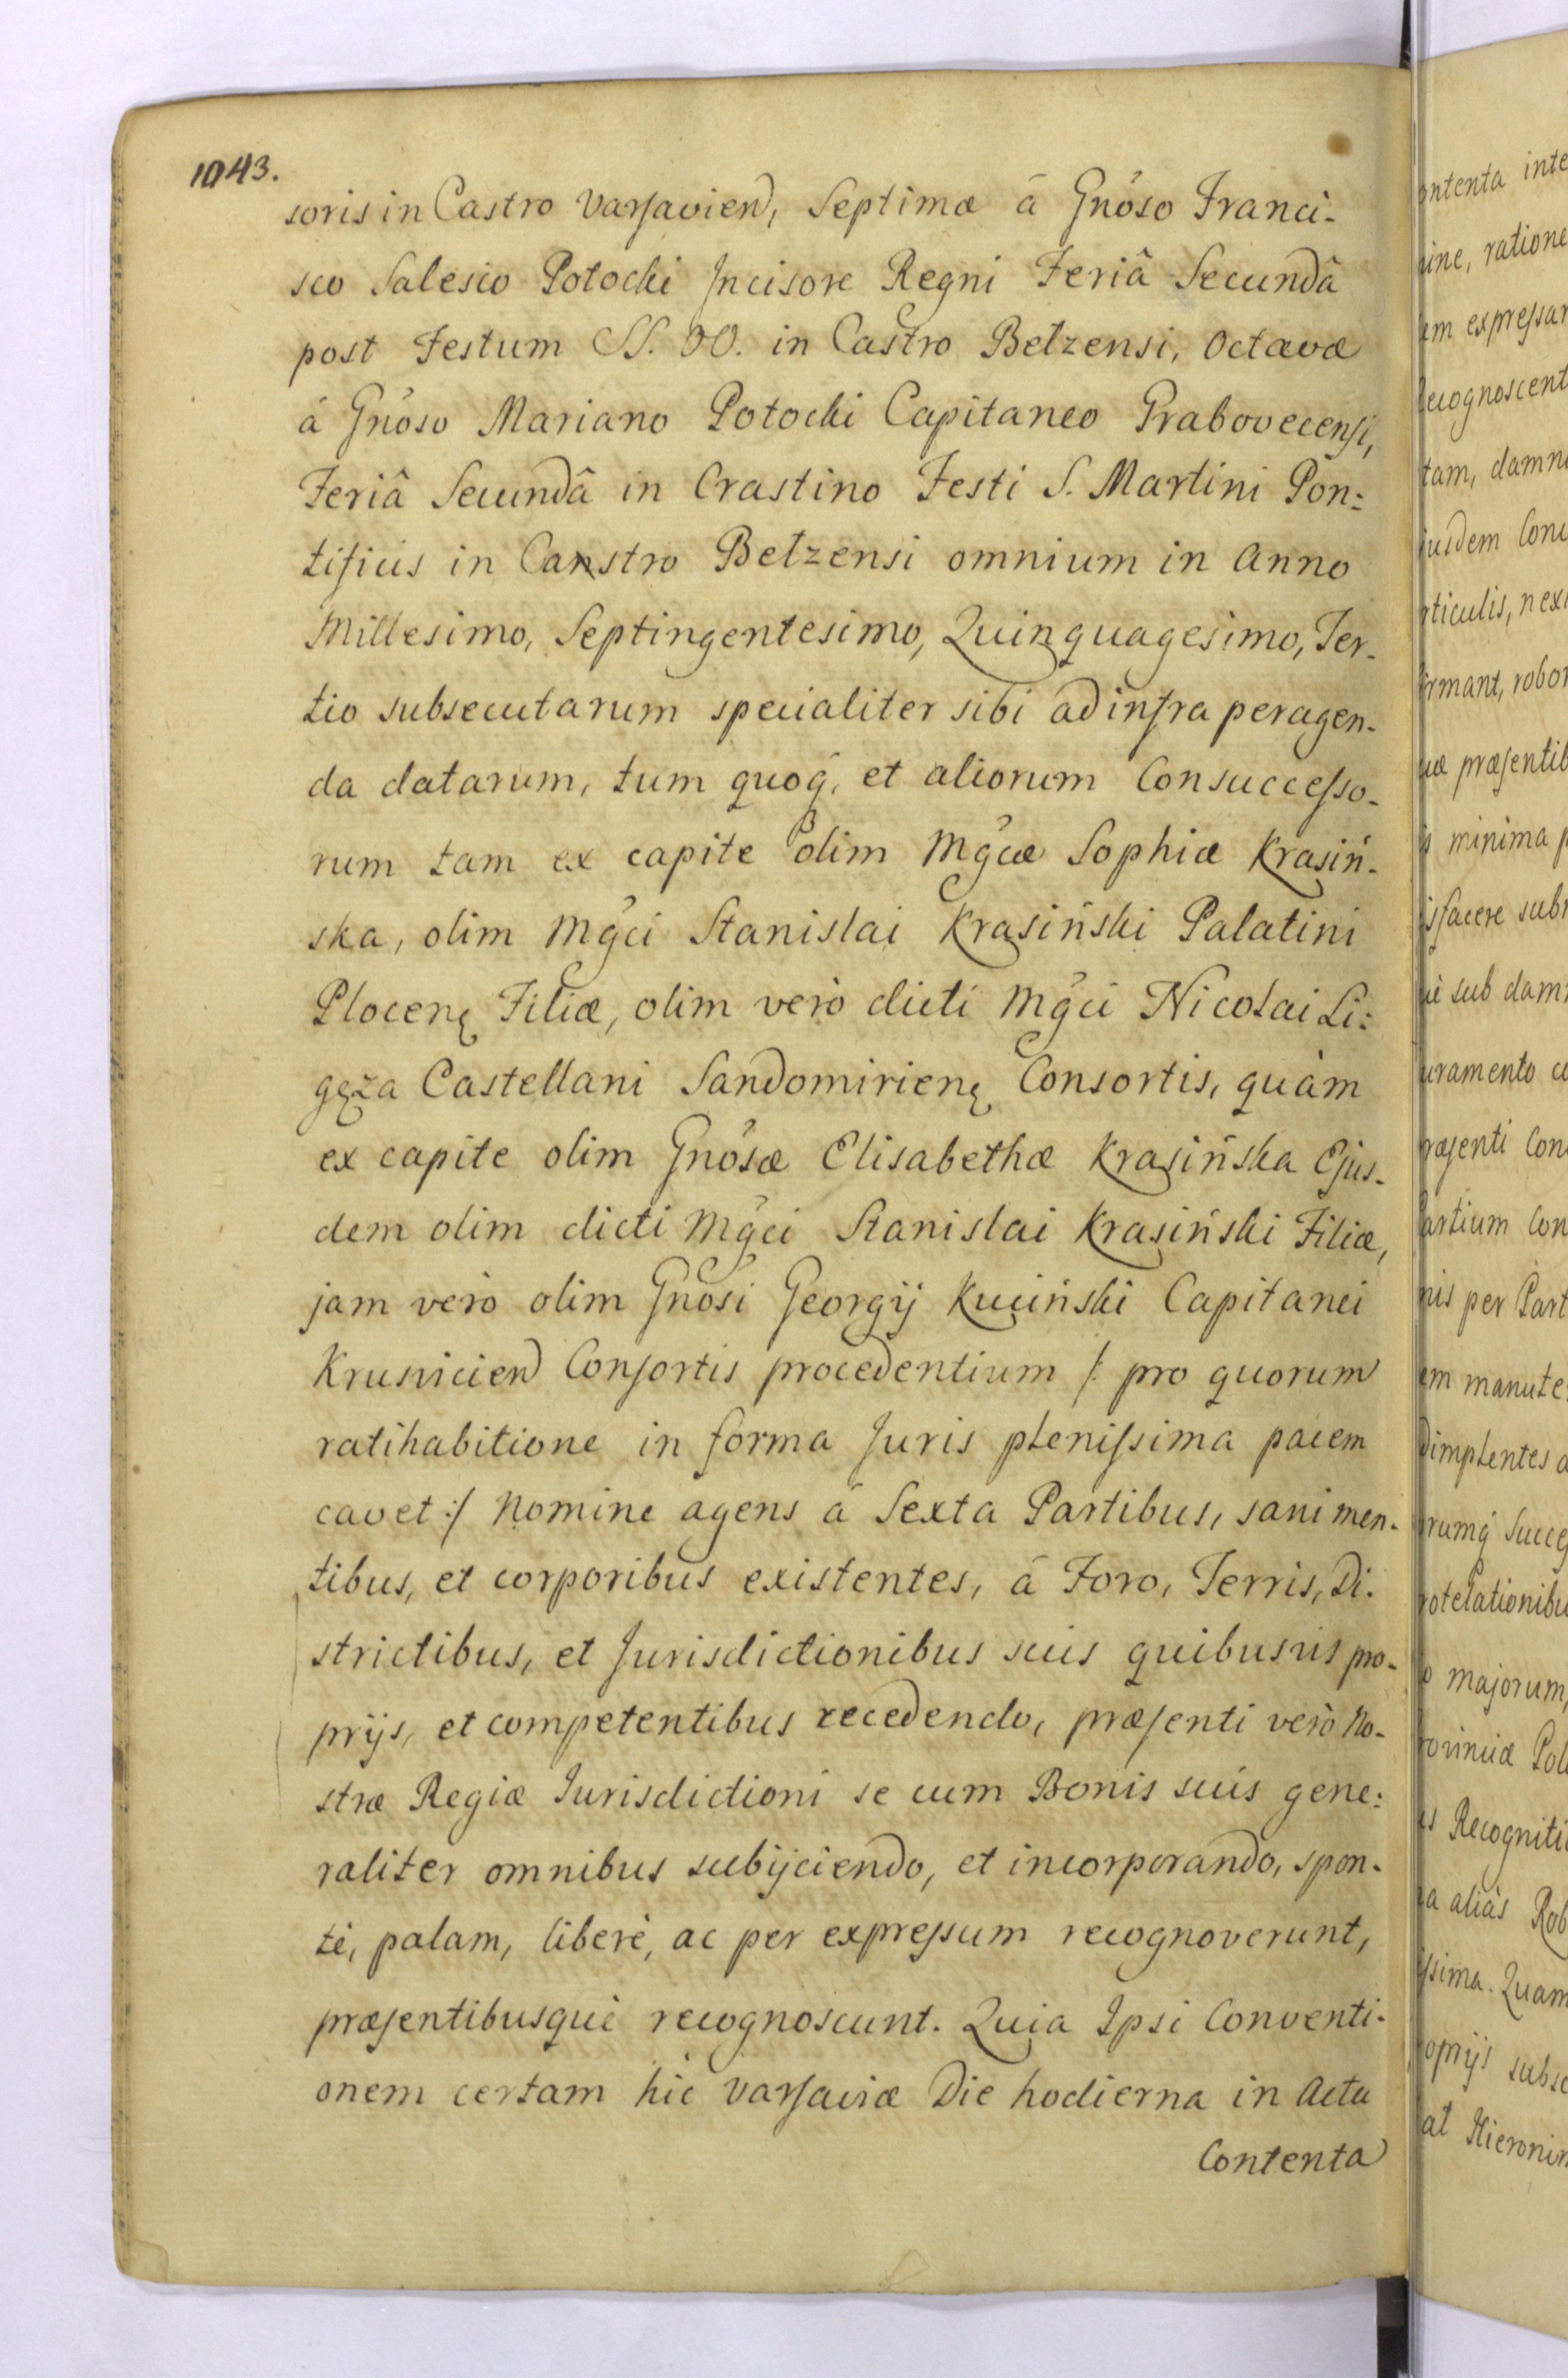 1043.
soris in Castro Varsavien, Septimæ â Gnoso Franci-
sco Salesio Potocki Incisore Regni Feriâ Secundâ
post Festum SS. OO. in Castro Betzensi, Octavæ
â Gnoso Mariano Potocki Capitaneo Grabovecensi,
Feriâ Secundâ in Crastino Festi S. Martini Pon:
tificis in Castro Betzensi omnium in Anno
Millesimo, Septingentesimo, Quinquagesimo, Ter-
tio subsecutarum specialiter sibi ad infra peragen-
da datarum, tum quoq, et aliorum Consuccesso-
rum tam ex capite olim Mgcæ Sophiæ Krasiń-
ska, olim Mgci Stanislai Krasiński Palatini
Plocenę Filiæ, olim verò dicti Mgci Nicolai Li:
gęza Castellani Sandomirienę Consortis, quàm
ex capite olim Gnosæ Elisabethæ Krasińska Ejus-
dem olim dicti Mgci Stanislai Krasiński Filiæ,
jam verò olim Gnosi Georgij Kuciński Capitanei
Krusvicien Consortis procedentium /: pro quorum
ratihabitione in forma Juris plenissima pacem
cavet :/ Nomine agens â Sexta Partibus, sani men-
tibus, et corporibus existentes, â Foro, Terris, Di-
strictibus, et Jurisdictionibus suis quibusvis pro-
prijs, et competentibus recedendo, præsenti verò No-
stræ Regiæ Jurisdictioni se cum Bonis suis gene:
raliter omnibus subijciendo, et incorporando, spon-
tè, palam, liberè, ac per expressum recognoverunt,
præsentibusquè recognoscunt. Quia Ipsi Conventi-
onem certam hic Varsaviæ Die hodierna in Acta
Contenta
ontenta inte
ine, ratione
em expressar
ecognoscent
tam, damn
jusdem Con
rticulis, nex
irmant, robor
uæ præsentib
s minima p
isfacere sub
ui sub dam
uramento c
ræsenti Con
artium Con
nis per Part
em manute
dimplentes a
rumq Succe
rotelationibu
o majorum,
rovinciæ Pol
is Recogniti
a aliàs Rob
ssima. Quam
roprijs subsc
at Hieronim